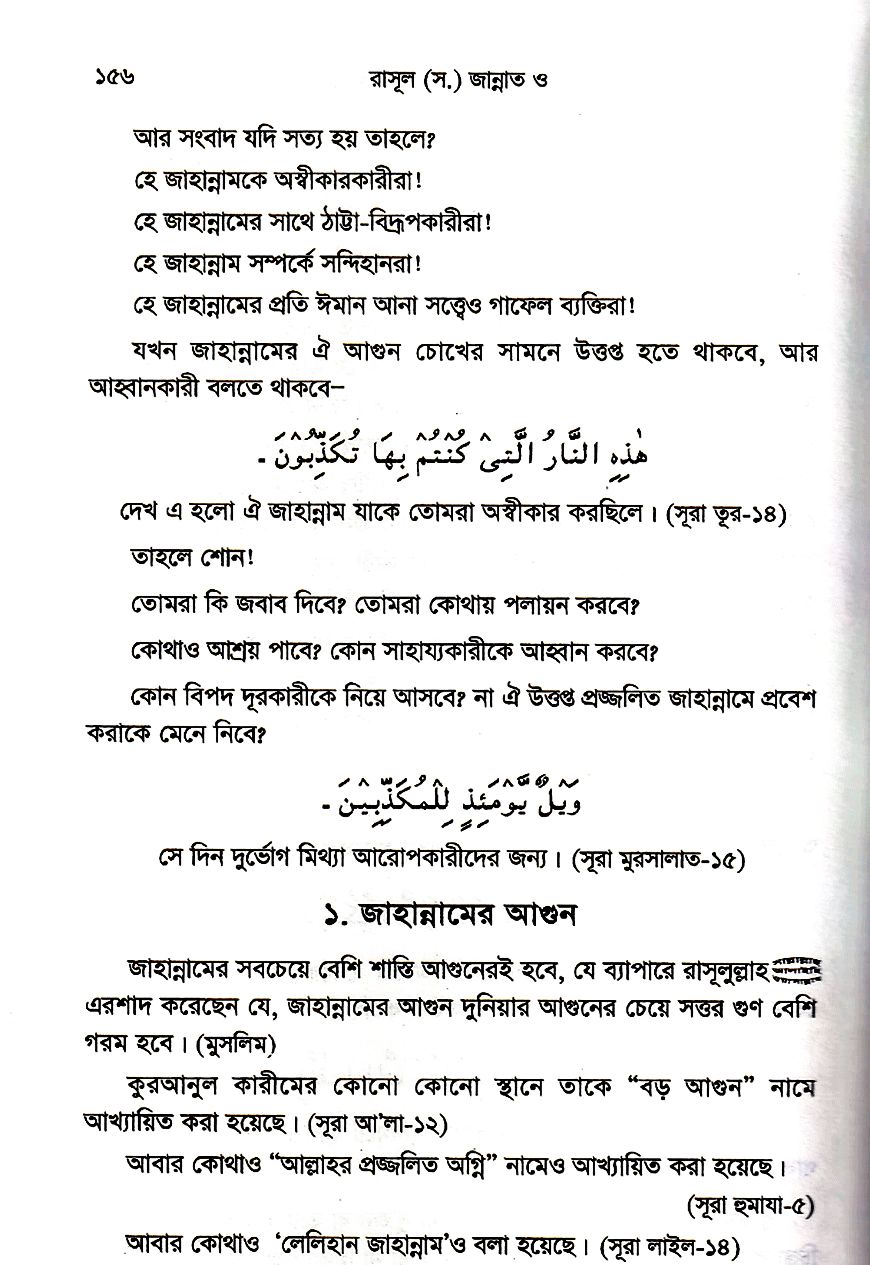 ১৫৬ রাসূল (স.) জান্নাত ও
আর সংবাদ যদি সত্য হয় তাহলে?
হে জাহান্নামকে অস্বীকারকারীরা!
হে জাহান্নামের সাথে ঠাট্টা-বিদ্রূপকারীরা!
হে জাহান্নাম সম্পর্কে সন্দিহানরা!
হে জাহান্নামের প্রতি ঈমান আনা সত্ত্বেও গাফেল ব্যক্তিরা!
যখন জাহান্নামের ঐ আগুন চোখের সামনে উত্তপ্ত হতে থাকবে, আর
আহ্বানকারী বলতে থাকবে–
هٰذِهِ النَّارُ الَّتِىْ كُنْتُمْ بِهَا تُكَذِّبُوْنَ ـ
দেখ এ হলো ঐ জাহান্নাম যাকে তোমরা অস্বীকার করছিলে। (সূরা তূর-১৪)
তাহলে শোন!
তোমরা কি জবাব দিবে? তোমরা কোথায় পলায়ন করবে?
কোথাও আশ্রয় পাবে? কোন সাহায্যকারীকে আহ্বান করবে?
কোন বিপদ দূরকারীকে নিয়ে আসবে? না ঐ উত্তপ্ত প্রজ্জলিত জাহান্নামে প্রবেশ
করাকে মেনে নিবে?
وَيْلٌ يَّوْمَئِذٍ لِلْمُكَذِّبِيْنَ ـ
সে দিন দুর্ভোগ মিথ্যা আরোপকারীদের জন্য। (সূরা মুরসালাত-১৫)
১. জাহান্নামের আগুন
জাহান্নামের সবচেয়ে বেশি শাস্তি আগুনেরই হবে, যে ব্যাপারে রাসূলুল্লাহ
এরশাদ করেছেন যে, জাহান্নামের আগুন দুনিয়ার আগুনের চেয়ে সত্তর গুণ বেশি
গরম হবে। (মুসলিম)
কুরআনুল কারীমের কোনো কোনো স্থানে তাকে “বড় আগুন” নামে
আখ্যায়িত করা হয়েছে। (সূরা আ'লা-১২)
আবার কোথাও “আল্লাহর প্রজ্জলিত অগ্নি” নামেও আখ্যায়িত করা হয়েছে।
(সূরা হুমাযা-৫)
আবার কোথাও 'লেলিহান জাহান্নাম'ও বলা হয়েছে। (সূরা লাইল-১৪)